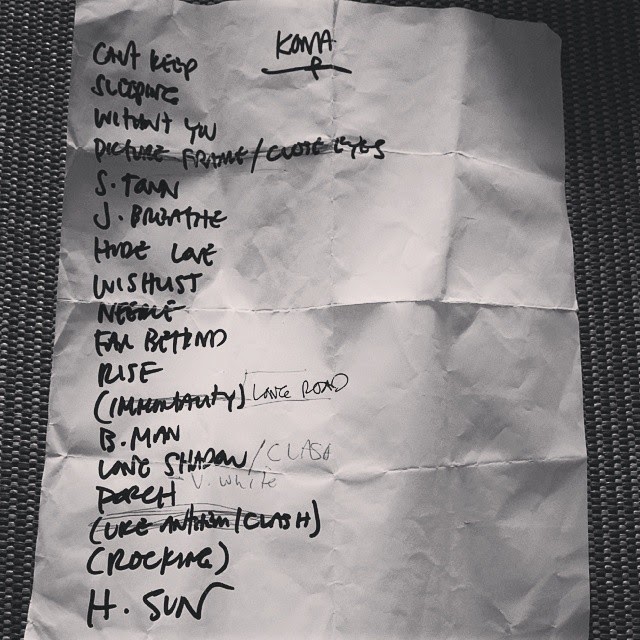 KONA
CAN'T KEEP
SLEEPING
WITHOUT YOU
PICTURE FRAME/CLOSE EYES
S. TOWN
J. BREATHE
HIDE LOVE
WISHLIST
NEEDLE
FAR BEHIND
RISE
(IMMORTALITY) LONG ROAD
B. MAN
LONG SHADOW/CLASH
V. White
PORCH
(UKE /CLASH)
(ROCKING)
H. SUN